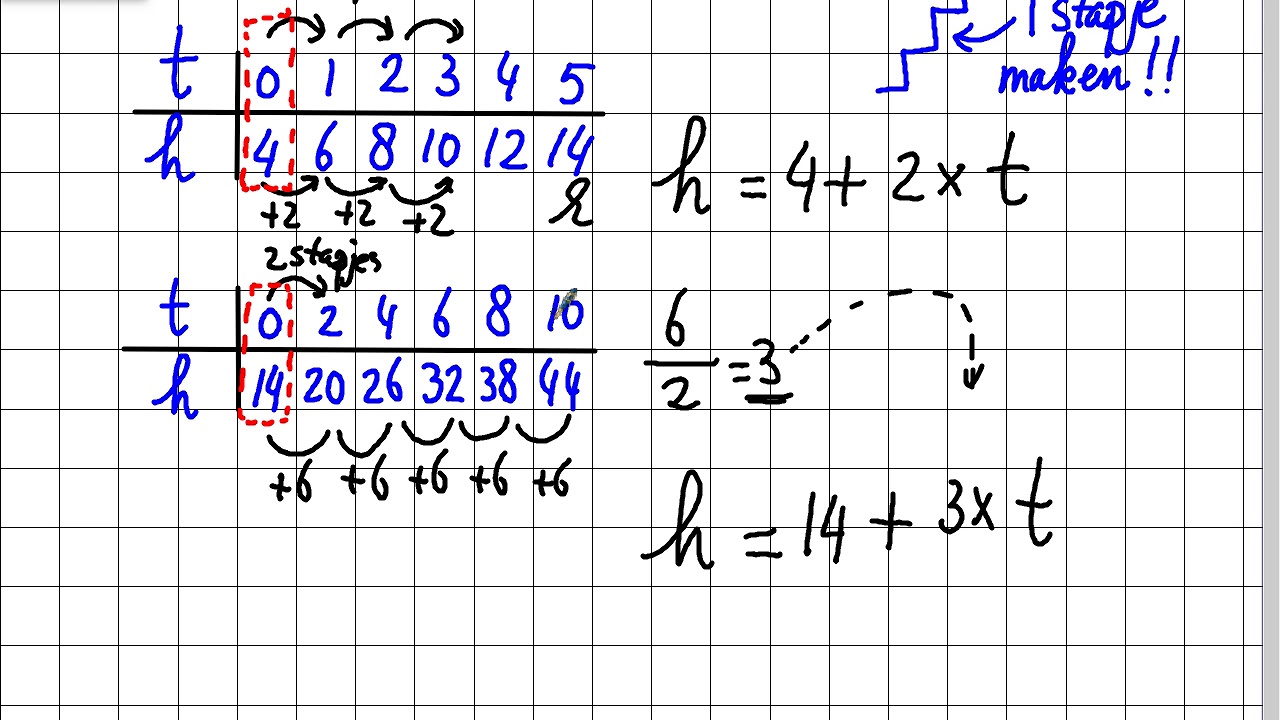 1 stapje
maken!!
t 0 1 2 3 4 5
h 4 6 8 10 12 14
+2 +2 +2
h = 4 + 2 x t
2 stapjes
t 0 2 4 6 8 10
h 14 20 26 32 38 44
+6 +6 +6 +6 +6
6
2
=3
h = 14 + 3 x t